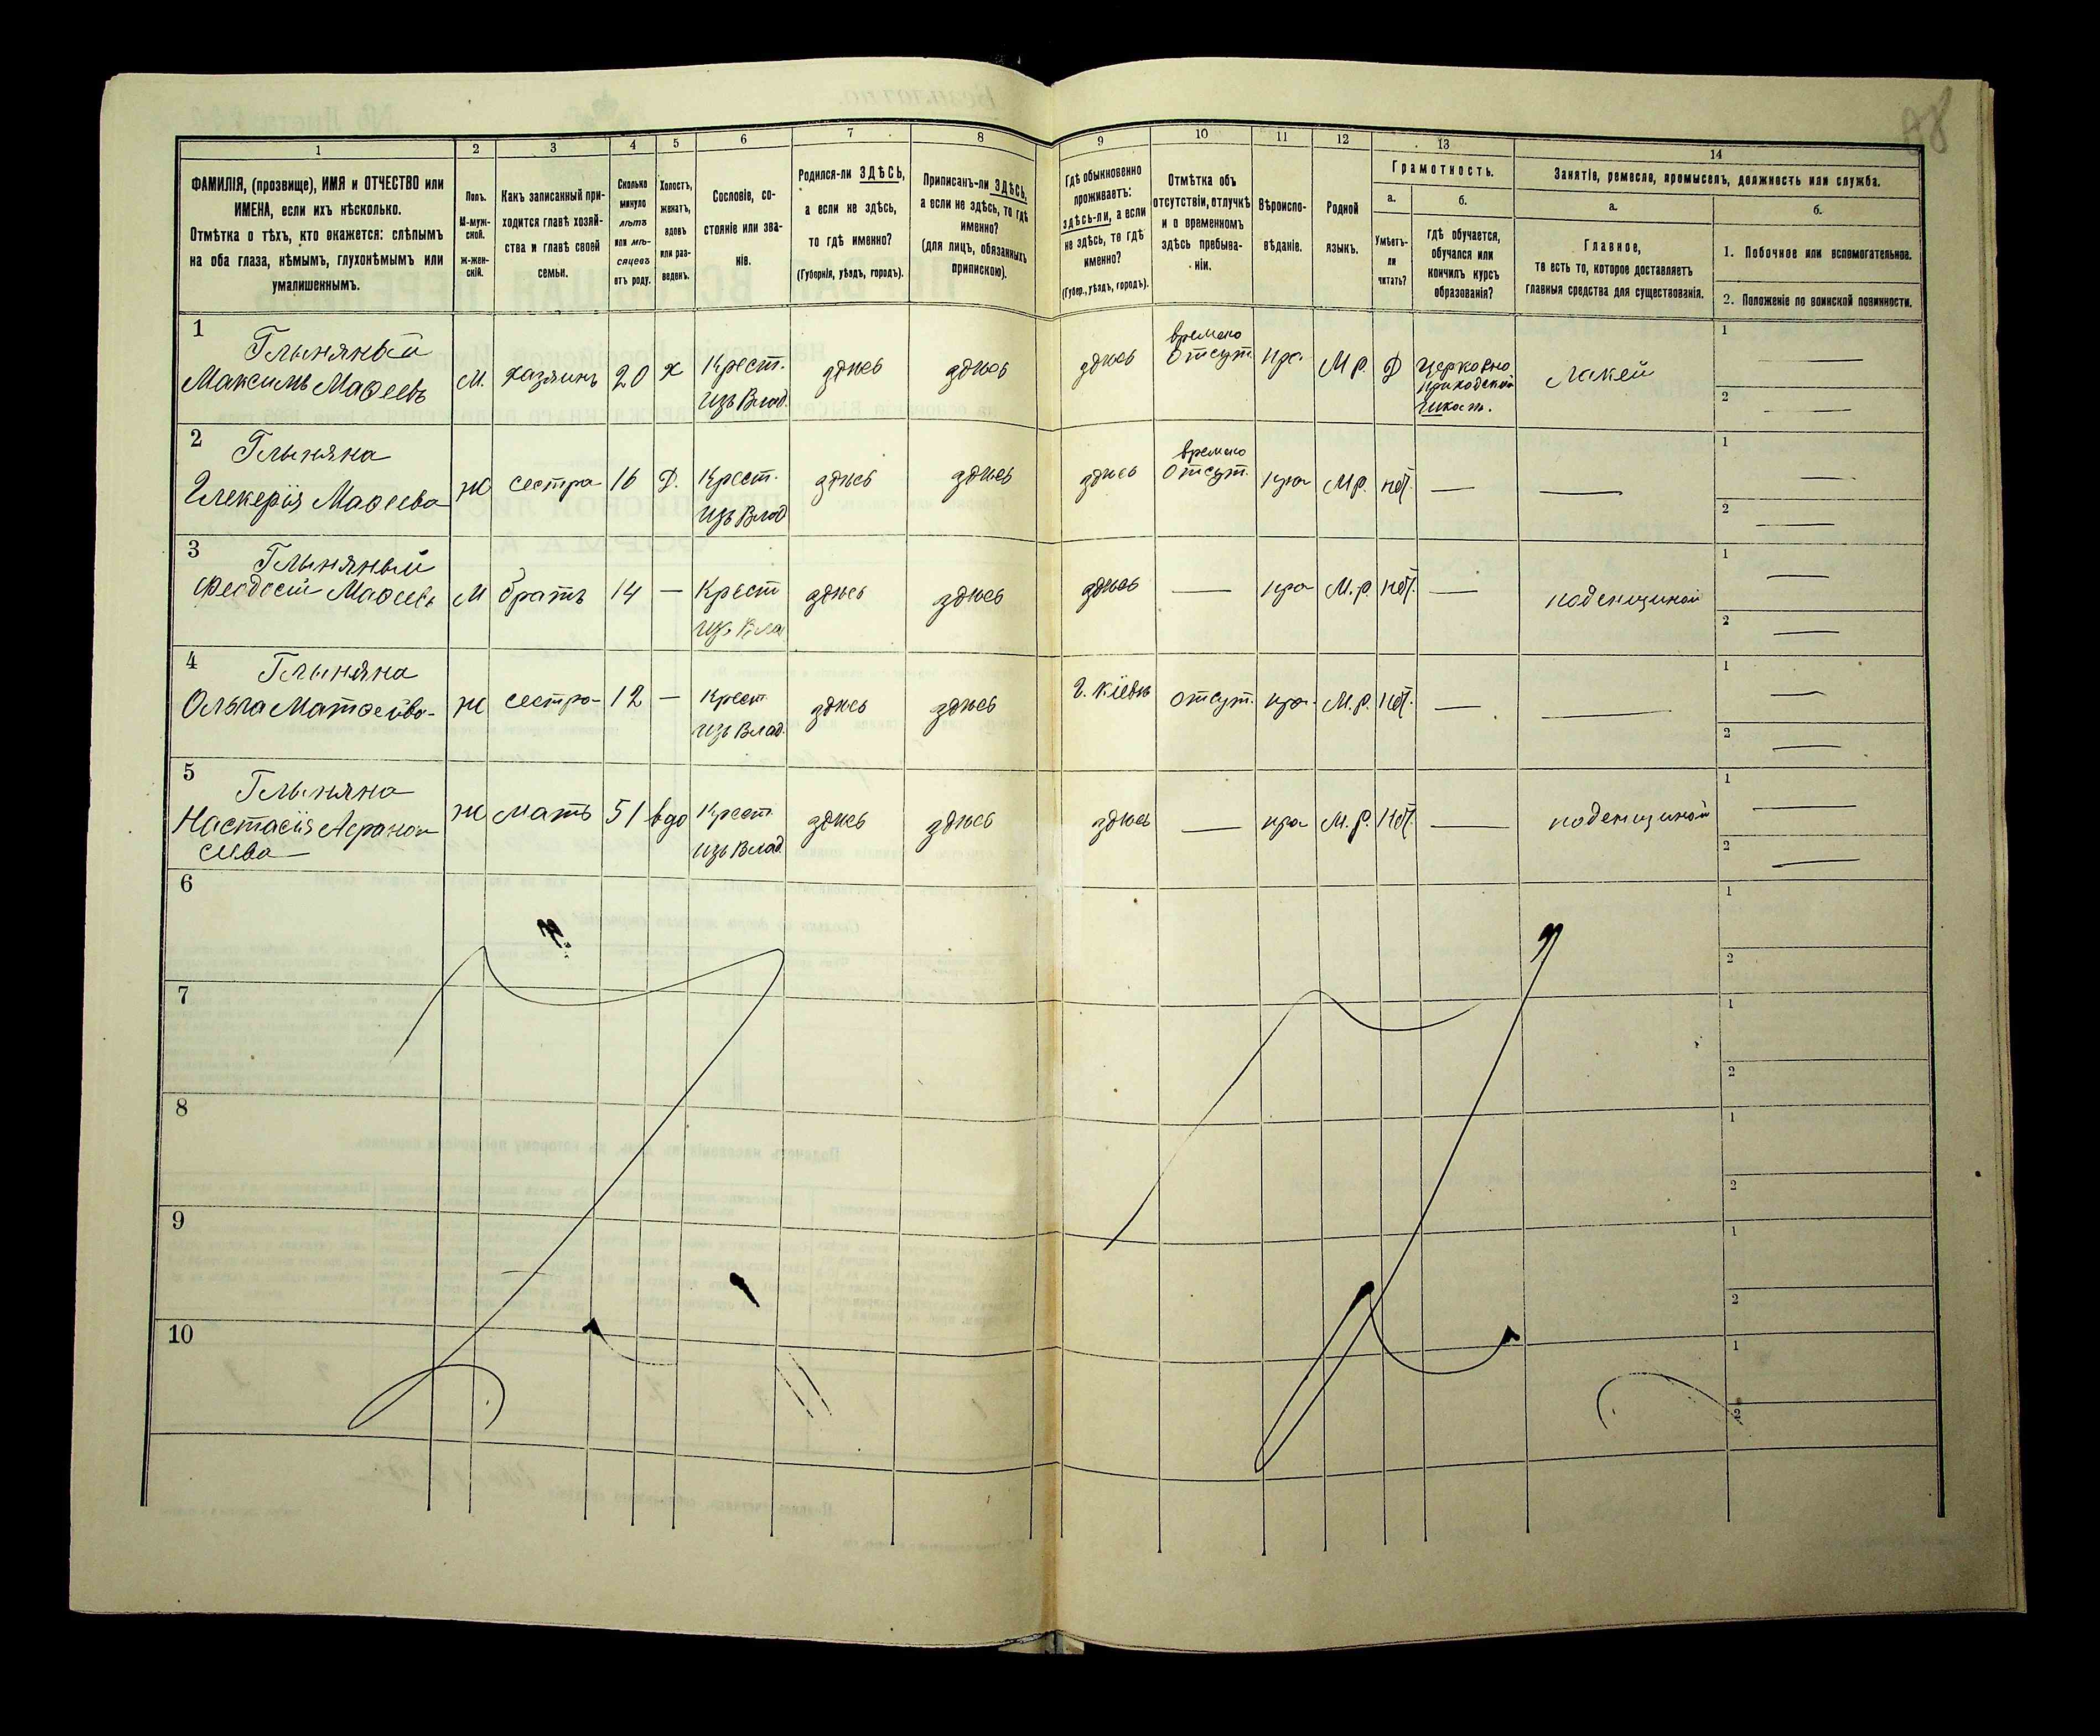 88
1
2
3
4
5
6
7
8
9
10
11
12
13
14
ФАМИЛІЯ, (прозвище), ИМЯ и ОТЧЕСТВО или
ИМЕНА, если ихъ нѣсколько.
Отмѣтка о тѣхъ, кто окажется: слѣпымъ
на оба глаза, нѣмымъ, глухонѣмымъ или
умалишеннымъ.
Полъ.
М-муж-
ской.
ж-жен-
скій.
Какъ записанный при-
ходится главѣ хозяй-
ства и главѣ своей
семьи.
Сколько
минуло
лѣтъ
или мѣ-
сяцевъ
отъ роду.
Холостъ,
женатъ,
вдовъ
или раз-
веденъ.
Сословіе, со-
стояніе или зва-
ніе.
Родился-ли ЗДѢСЬ,
а если не здѣсь,
то гдѣ именно?
(Губернія, уѣздъ, городъ).
Приписанъ-ли ЗДѢСЬ,
а если не здѣсь, то гдѣ
именно?
(для лицъ, обязанныхъ
припискою).
Гдѣ обыкновенно
проживаетъ:
здѣсь-ли, а если
не здѣсь, то гдѣ
именно?
(Губер., уѣздъ, городъ).
Отмѣтка объ
отсутствіи, отлучкѣ
и о временномъ
здѣсь пребыва-
ніи.
Вѣроиспо-
вѣданіе.
Родной
языкъ.
Грамотность.
а.
Умѣетъ-
ли
читать?
б.
гдѣ обучается,
обучался или
кончилъ курсъ
образованія?
Занятіе, ремесло, промыселъ, должность или служба.
а.
Главное,
то есть то, которое доставляетъ
главныя средства для существованія.
б.
1. Побочное или вспомогательное.
2. Положеніе по воинской повинности.
1
Глиняный
Максимъ Маѳеевъ
М.
хазяинъ
20
х
Крест.
изъ Влад.
здѣсь
здѣсь
здѣсь
времено
Отсут.
пра
М р.
Д
Церковно
приходской
школѣ.
Лакей
1
2
2
Глиняна
Гликерія Маѳеева
Ж
сестра
16
Д.
Крест.
изъ Влад
здѣсь
здѣсь
здѣсь
времено
Отсут.
пра
М р.
нѣт.
—
—
1
2
3
Глиняный
Феодосій Маѳеевъ
М
братъ
14
—
Крест
изъ Вла
здѣсь
здѣсь
здѣсь
—
пра
М. р.
нѣт.
—
поденщиной
1
2
4
Глиняна
Ольга Матѳеева
Ж
сестра
12
—
Крест
изъ Влад.
здѣсь
здѣсь
г. Кіевъ
отсут.
пра.
М. р.
нѣт.
—
—
1
2
5
Глиняна
Настасія Аѳанас
ева
Ж
мать
51
вдо
Крест
изъ Влад.
здѣсь
здѣсь
здѣсь
—
пра
М. р.
нѣт.
—
поденщиной
1
2
6
1
2
7
1
2
8
1
2
9
1
2
10
1
2